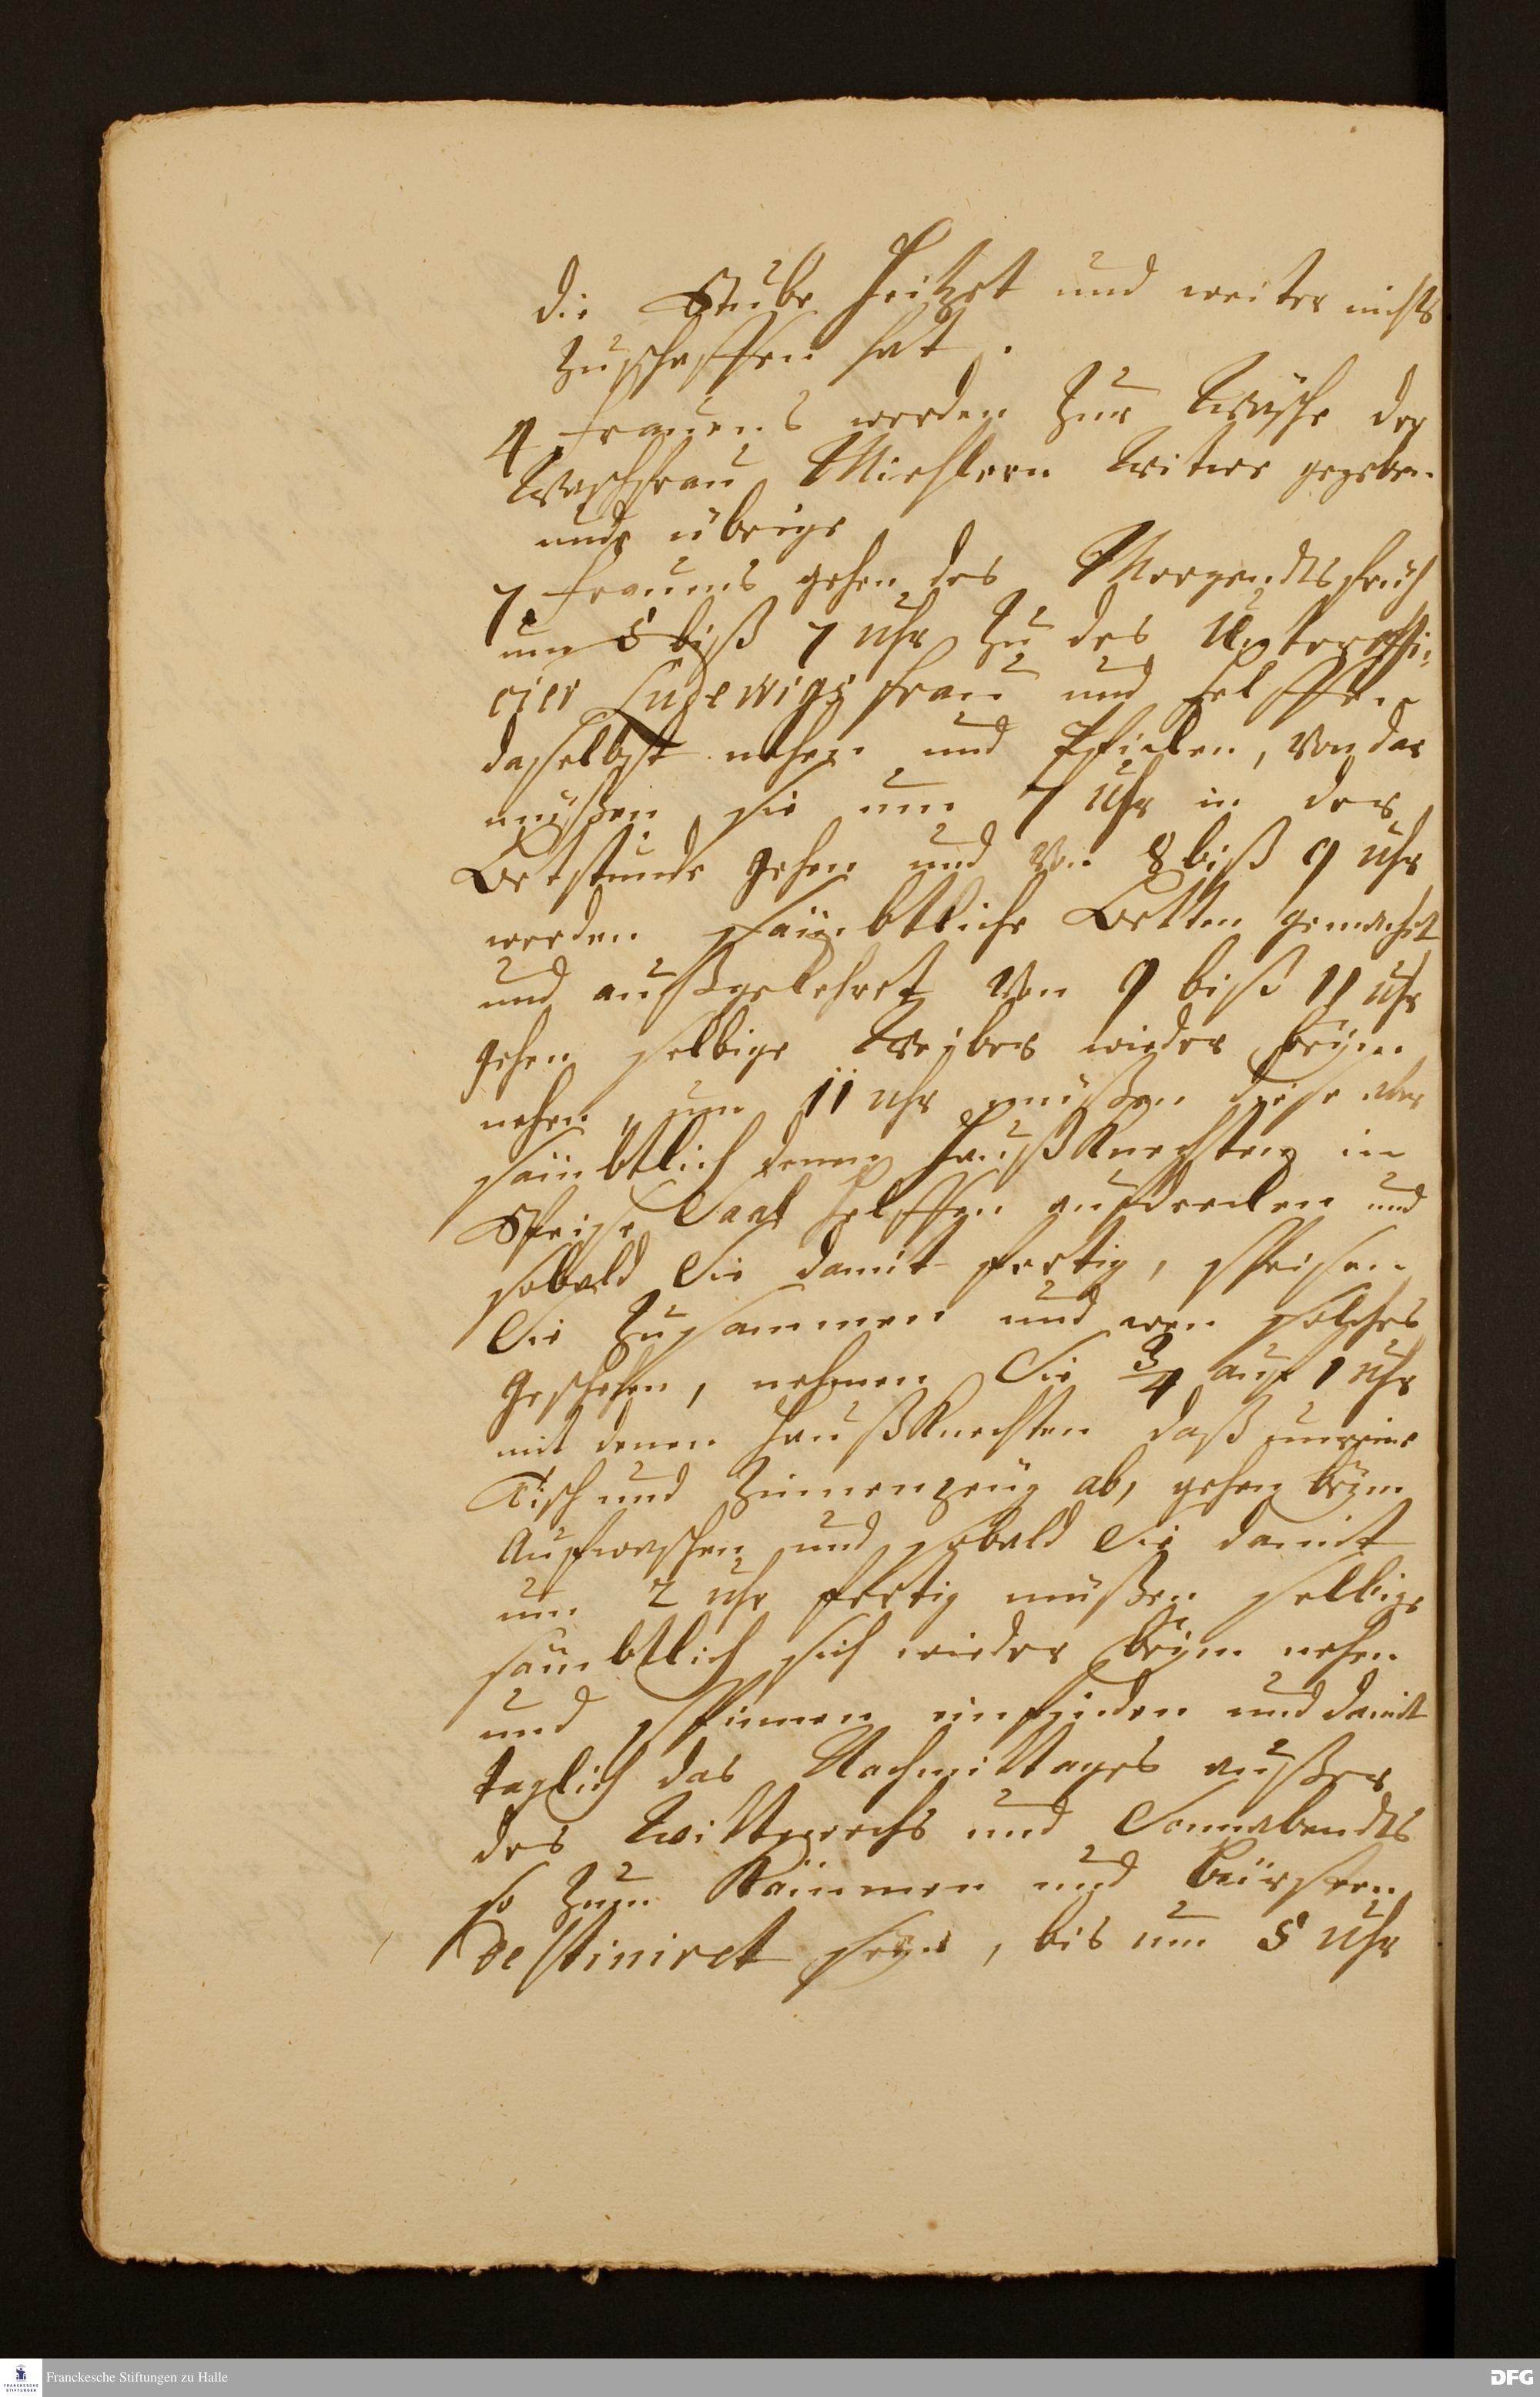 die Stube heitzet und weiter nichts
zuschaffen hat.
4 frauens werden zur Wäsche der
Waschfrau Miehlern Witwe gegeben
und übrige
7 frauens gehen des Morgendts früh
um 5 biß 7 Uhr zu des Unteroffi-
cier Ludewigs frau und helffen
daselbst nehen und , von dar
müßen sie um 7 Uhr in der
Betstunde gehen und von 8 biß 9 Uhr
werden sämbtliche Betten gemachet
und außgekehret von 9 biß 11 Uhr
gehen selbige Weiber wieder beym
nehen, um 11 Uhr müßen diese aber
sämbtlich denen Haußknechten in
Speise Saal helffen aufdecken und
sobald Sie damit fertig, speisen
Sie zusammen und wen solches
geschehen, nehmen Sie 3/4 auf 1 Uhr
mit denen Haußknechten daß unreine
Tisch und Zinnenzeug ab, gehen beym
Aufwaschen und sobald Sie damit
um 2 Uhr fertig müßen selbige
sämbtlich sich wieder beym nehen
und spinnen einfinden und damit
täglich des Nachmittages außer
des Mittwochs und Sonnabendts
so zum Kämmen und bürsten
destiniret seyn, bis um 5 Uhr
Franckesche Stiftungen zu Halle
DFG